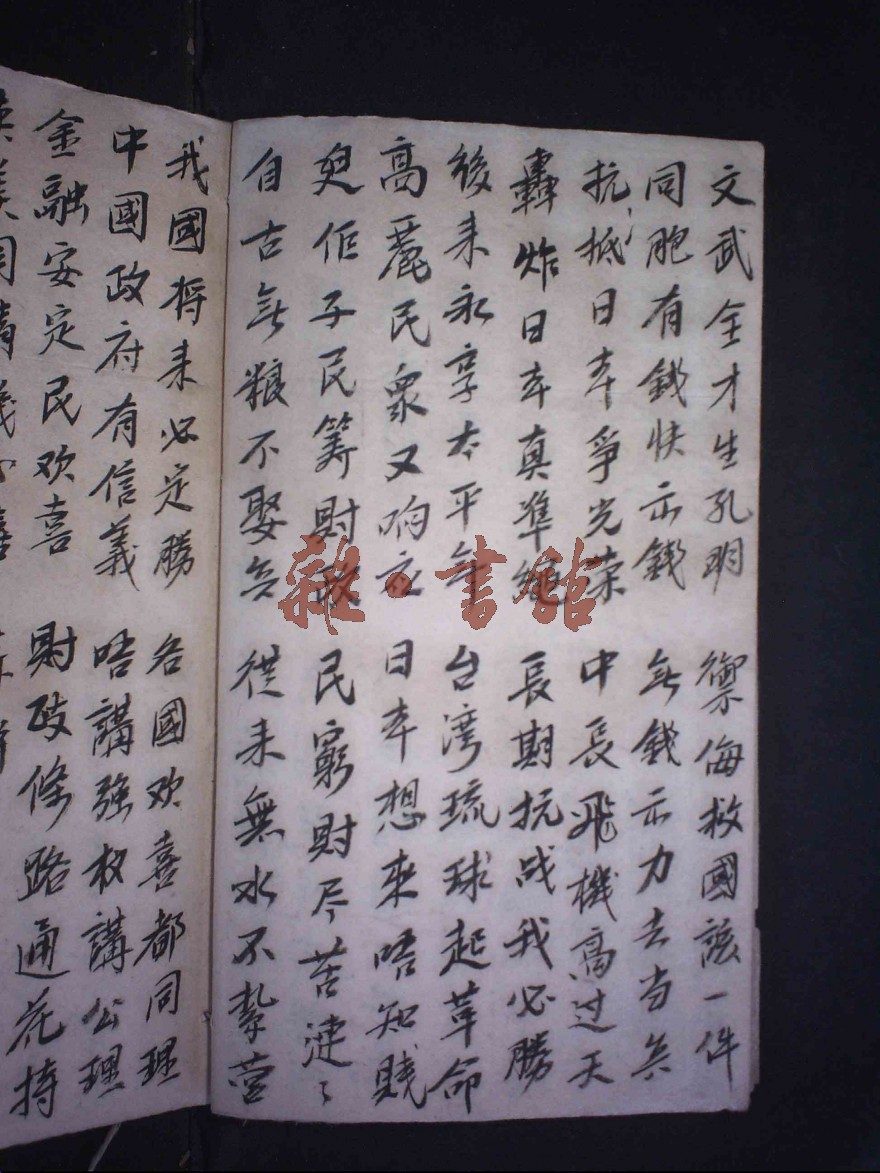 文武全才生孔明 禦侮救國該一件
同胞有錢快出錢 無錢出力去当兵
抗抵日本爭光荣 中長飛機高过天
轟炸日本真準繩 長期抗战我必勝
後来永享太平年 台湾琉球起革命
高麗民衆又响应 日本想來唔知賤
臾佢子民筹財政 民窮財尽苦凄〻
自古無粮不娶兵 從来無水不紮营
我國将来必定勝 各國欢喜都同理
中國政府有信義 唔講强权講公理
金融安定民欢喜 財政條路通花持
同情
雜·書館